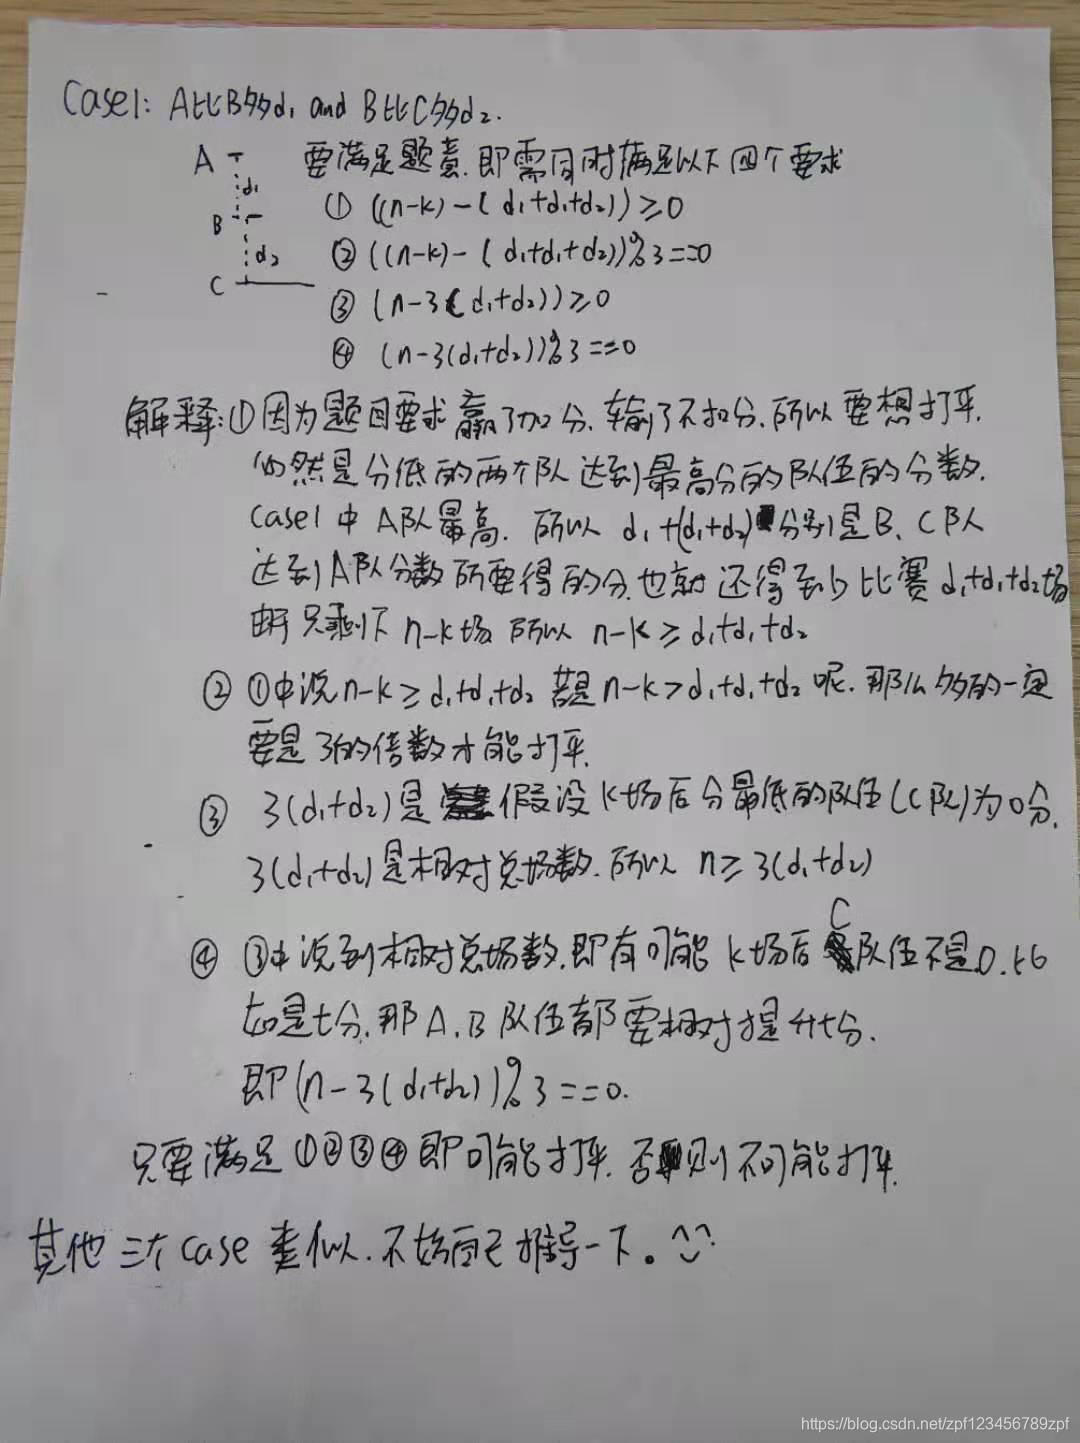 Case1: A比B多d₁ and B比C多d₂.
A
d₁
B
d₂
C
要满足题意.即需同时满足以下四个要求
① ((n-k)-(d₁+d₁+d₂))≥0
② ((n-k)-(d₁+d₁+d₂))%3==0
③ (n-3(d₁+d₂))≥0
④ (n-3(d₁+d₂))%3==0
解释:①因为题目要求赢了加分.输了不扣分.所以要想打平.
必然是分低的两个队达到最高分的队伍的分数.
case1中A队最高.所以 d₁+(d₁+d₂)分别是B、C队
达到A队分数所要得的分.也就还得至少比赛d₁+d₁+d₂场
由于只剩下n-k场 所以 n-k≥d₁+d₁+d₂
② ①中说n-k≥d₁+d₁+d₂ 若是n-k>d₁+d₁+d₂呢.那么多的一定
要是3的倍数才能打平.
③ 3(d₁+d₂)是假设k场后分最低的队伍(C队)为0分.
3(d₁+d₂)是相对总场数.所以 n≥3(d₁+d₂)
④ ③中说到相对总场数.即有可能k场后C队伍不是0.比
如是t分.那A、B队伍都要相对提升t分.
即(n-3(d₁+d₂))%3==0.
只要满足①②③④即可能打平.否则不可能打平.
其他三个case类似.不妨自己推导一下。^-^
https://blog.csdn.net/zpf123456789zpf